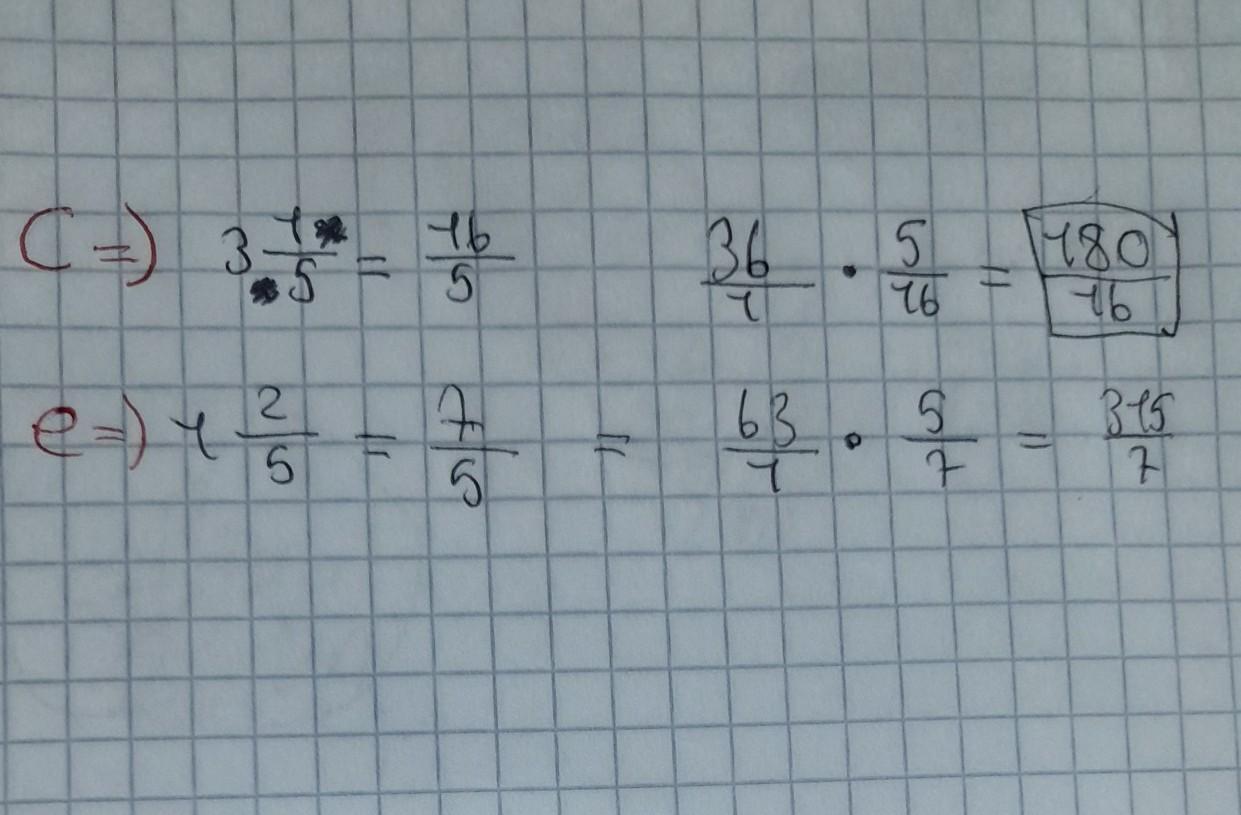 C=) 3 1/5 = 16/5 36/1 · 5/16 = 180/16
e=) 1 2/5 = 7/5 = 63/1 · 5/7 = 315/7